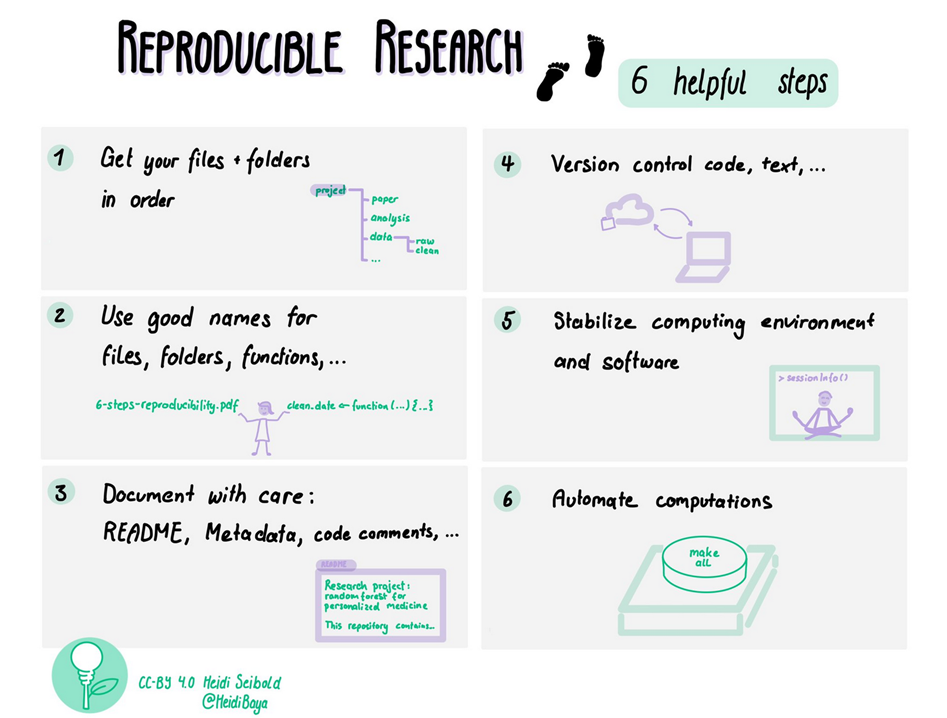 REPRODUCIBLE RESEARCH
6 helpful steps
1 Get your files + folders
in order
project
paper
analysis
data
raw
clean
...
2 Use good names for
files, folders, functions, ...
6-steps-reproducibility.pdf
clean.date <- function(...) {...}
3 Document with care:
README, Metadata, code comments, ...
README
Research project:
random forest for
personalized medicine
This repository contains...
4 Version control code, text, ...
5 Stabilize computing environment
and software
> sessionInfo()
6 Automate computations
make
all
CC-BY 4.0 Heidi Seibold
@HeidiBaya